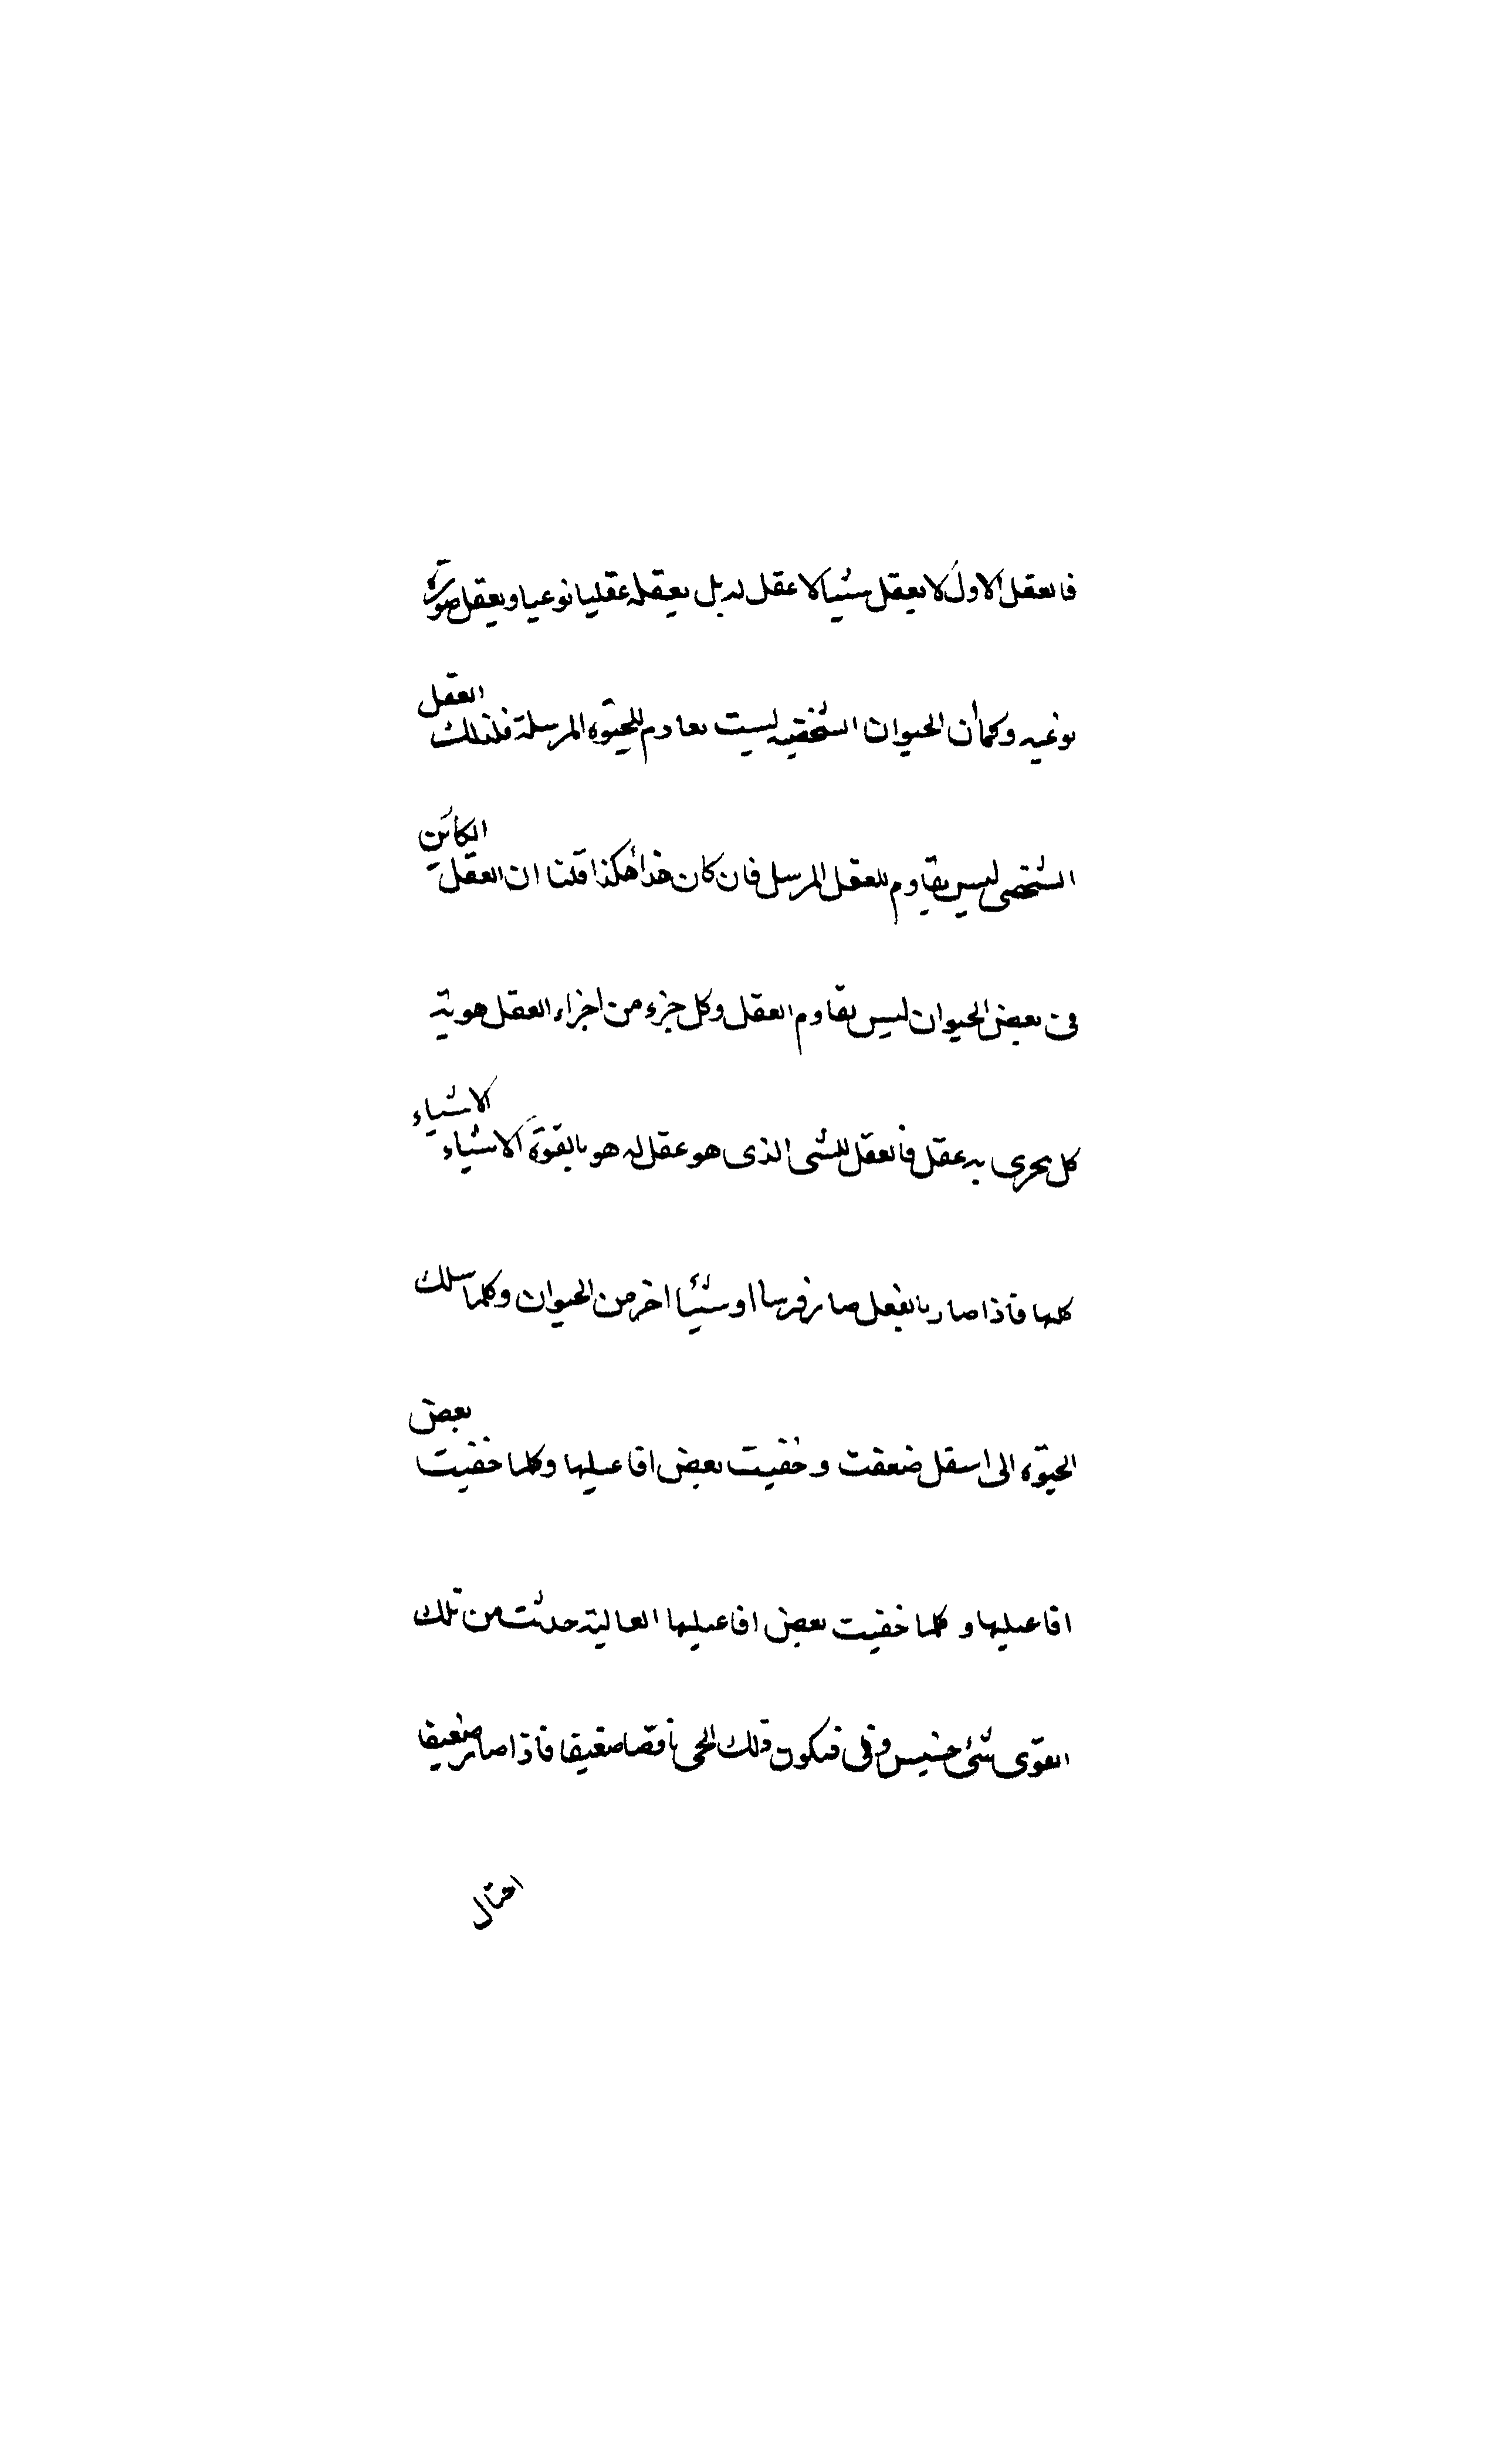 فالعقل الاول لا يعقل شيئا لا عقل له بل يعقله عقليا نوعيا ويعقل صورة
نوعيه وكما ان الحيوان الشخصيه ليست بعادم للحيوة المرسلة فلذلك العقل
الشخصى ليس بقاوم للعقل المرسل فان كان هذا هكذا قلنا ان العقل الكائن
فى بعض الحيوان ليس بقاوم العقل وكل جزء من اجزاء العقل هو يته
كل يحرى به عقل فالعقل للشى الذى هو عقل له هو بالقوة الاشياء الاشياء
كلها فاذا صار بالفعل صار فرسا او شيئا اخر من الحيوان وكلما سلك
الحيوة الى اسفل ضعفت وخفيت بعض افاعيلها وكلما خفيت بعض
افاعيلها و كلما خفيت بعض افاعيلها العالية حدثت من تلك
القوى شئ خسيس فيكون ذلك الحى ناقصا ضعيفا فاذا صار ضعيفا
احتال